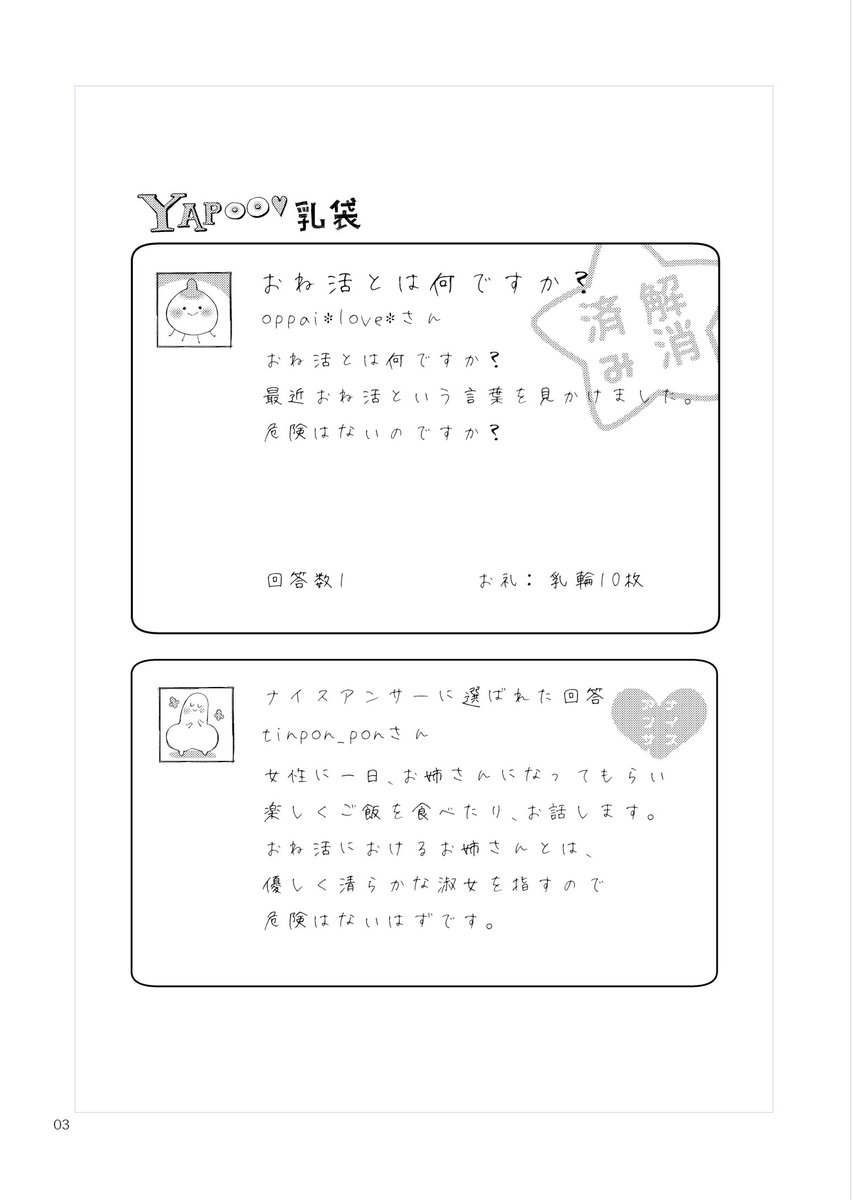 YAPOO♥乳袋
おね活とは何ですか?
oppai*love*さん
解消
済み
おね活とは何ですか?
最近おね活という言葉を見かけました。
危険はないのですか?
回答数1 お礼: 乳輪10枚
ナイスアンサーに選ばれた回答
ナイス
アンサー
tinpon_ponさん
女性に一日、お姉さんになってもらい
楽しくご飯を食べたり、お話します。
おね活におけるお姉さんとは、
優しく清らかな淑女を指すので
危険はないはずです。
03